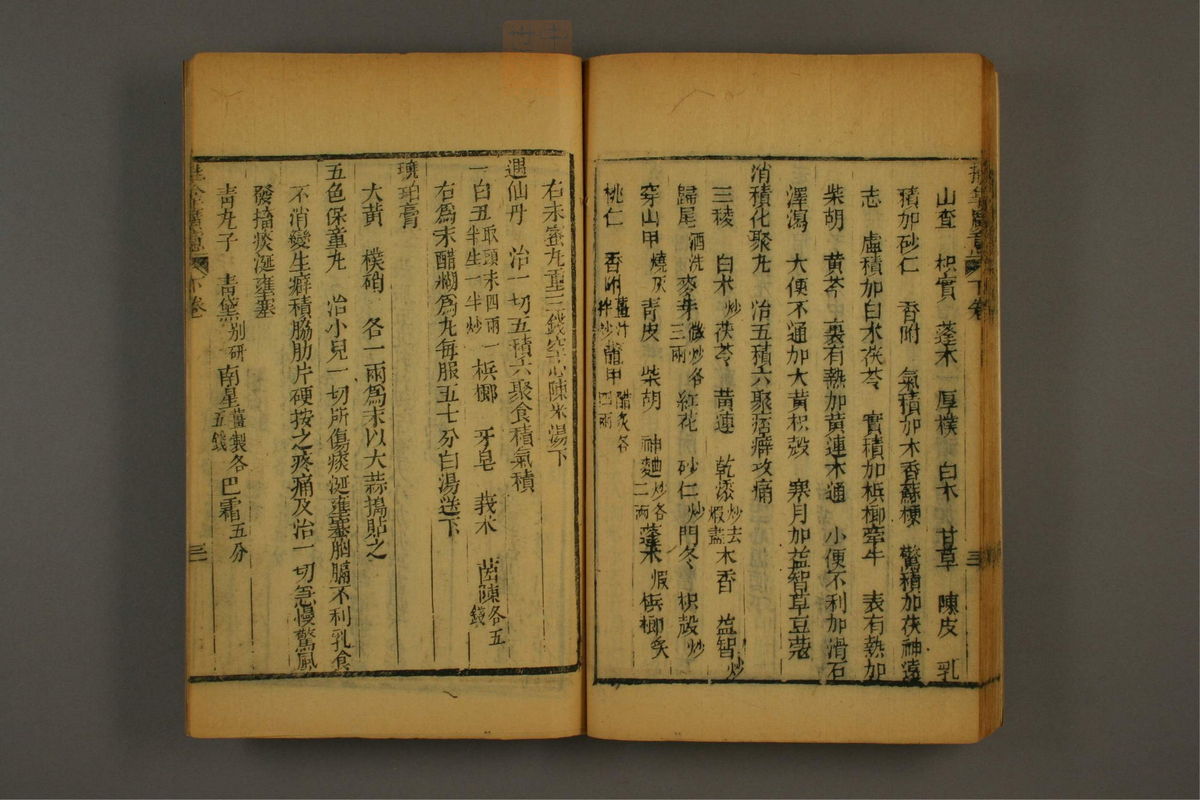 山查　枳實　蓬朮　厚樸　白朮　甘草　陳皮　乳
積加砂仁　香附　氣積加木香蘇梗　驚積加茯神遠
志　虛積加白朮茯苓　實積加梹榔牽牛　表有熱加
柴胡　黃芩　裏有熱加黃連木通　小便不利加滑石
澤瀉　大便不通加大黃枳殼　寒月加益智草豆蔻
消積化聚丸　治五積六聚痞癖攻痛
三稜　白朮炒茯苓　黃連　乾漆炒去烟盡木香　益智炒
歸尾酒洗麥芽微炒各三兩紅花　砂仁炒門冬　枳殼炒
穿山甲燒灰青皮　柴胡　神麯炒各二兩蓬朮煨梹榔
桃仁　香附薑汁拌炒龞甲醋炙各四兩
下卷
三
右末蜜丸重三錢空心陳米湯下
遇仙丹　治一切五積六聚食積氣積
白丑取頭末四兩一半生一半炒梹榔　牙皂　莪朮　茵陳各五錢
右爲末醋糊爲丸每服五七分白湯送下
琥珀膏
大黃　樸硝　各一兩爲末以大蒜搗貼之
五色保童丸　治小兒一切所傷痰涎壅塞胸膈不利乳食
不消變生癖積脇肋片硬按之疼痛及治一切急慢驚風
發搐痰涎壅塞
青丸子　青黛別研一南星薑製各五錢巴霜五分
下卷
三